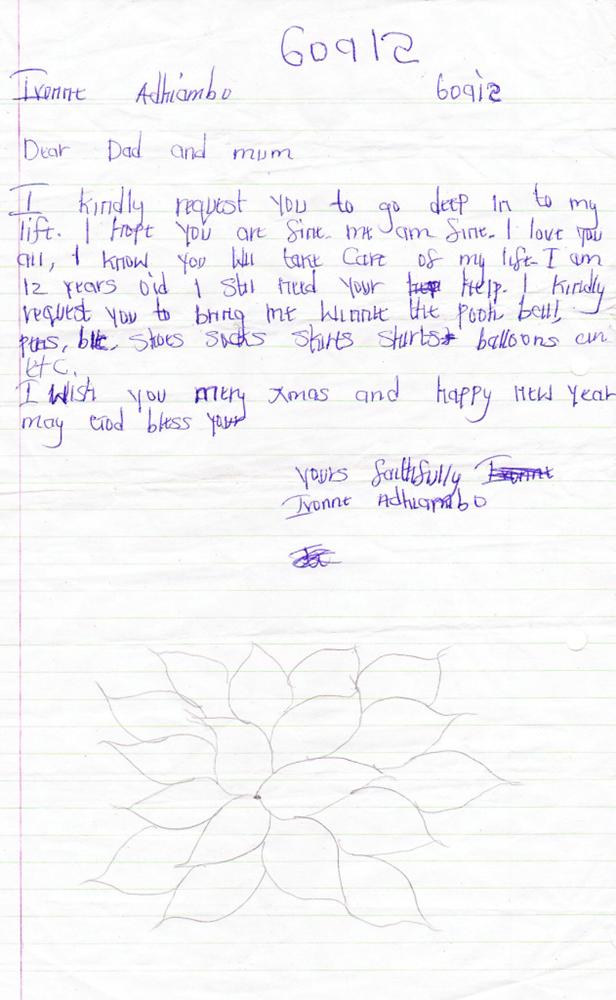 60912
Ivonne Adhiambo 60912
Dear Dad and mum
I kindly request you to go deep in to my
life. I hope you are fine. me am fine. I love you
all, I know you will take care of my life. I am
12 years old I still need your help. I kindly
request you to bring me Winnie the pooh, ball,
pens, shoes socks skirts shirts balloons an
etc.
I Wish you merry xmas and happy new year
may God bless you
yours faithfully
Ivonne Adhiambo